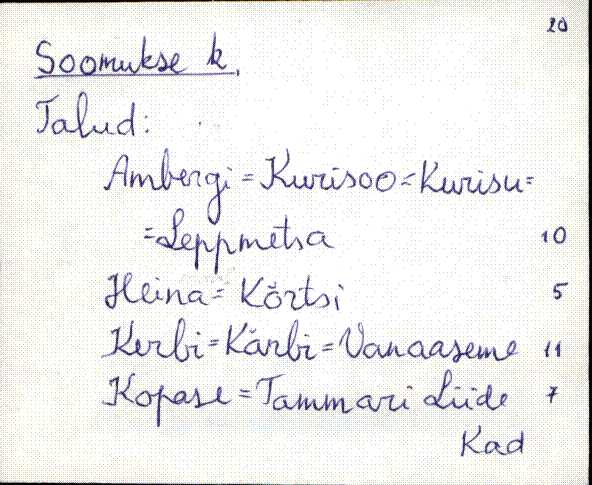 20
Soomukse k.
Talud:
Ambergi = Kurisoo = Kurisu =
= Leppmetsa 10
Heina = Kõrtsi 5
Kerbi = Kärbi = Vanaaseme 11
Kopase = Tammari Liide 7
Kad